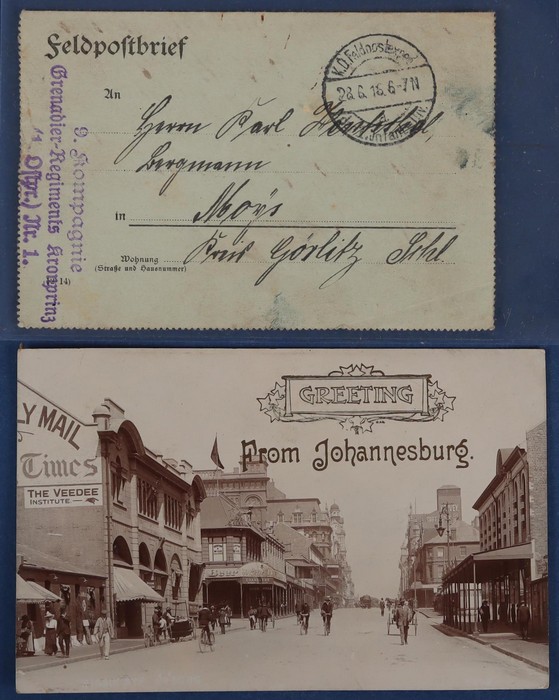 Feldpostbrief
K.D. Feldpostexped.
28.6.16. 6-7N
An
Herrn Karl
Bergmann
in Moys
Kreis Görlitz Schl.
Wohnung
(Straße und Hausnummer)
14)
9. Kompagnie
Grenadier-Regiments Kronprinz
(1. Ostpr.) Nr. 1.
GREETING
From Johannesburg.
LY MAIL
Times
THE VEEDEE
INSTITUTE